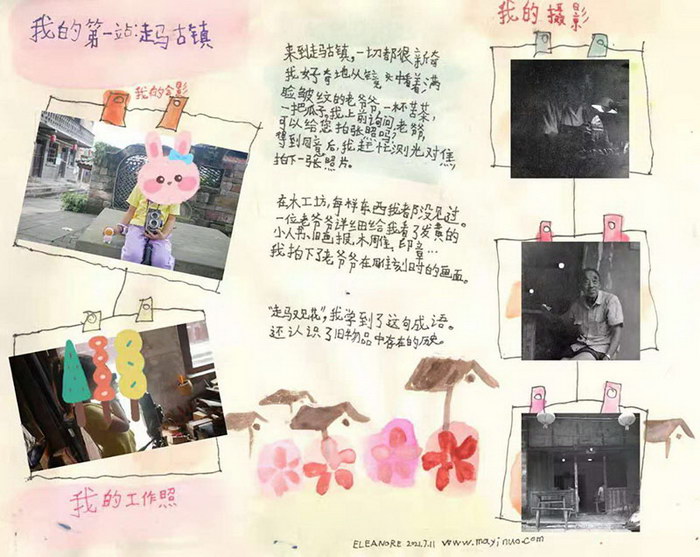 我的第一站:走马古镇
我的合影
我的工作照
来到走马古镇,一切都很新奇
我好奇地从镜头中看着满
脸皱纹的老爷爷,一杯苦茶,
一把瓜子。我上前询问老爷爷,
可以给您拍张照吗?
得到回音后,我赶忙测光对焦
拍下一张照片。
在木工坊,每样东西我都没见过。
一位老爷爷详细给我看了发黄的
小人书、旧邑报、木雕、印章…
我拍下了老爷爷在雕刻时的画面。
“走马观花”,我学到了这句成语。
还认识了旧物品中存在的历史。
我的摄影
ELEANORE 2021.7.11 www.mayinuo.com